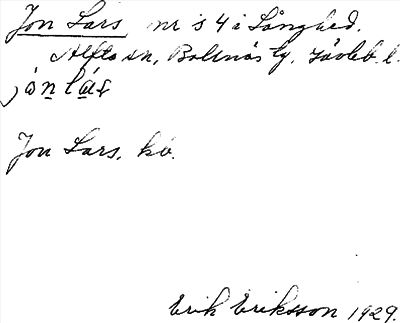 Jon Lars nr 3 4 i Långhed.
Alfta sn, Bollnäs tg, Gävleb. l.
jo̱n lá̱s
Jon Lars, hb.
Erik Eriksson 1929.